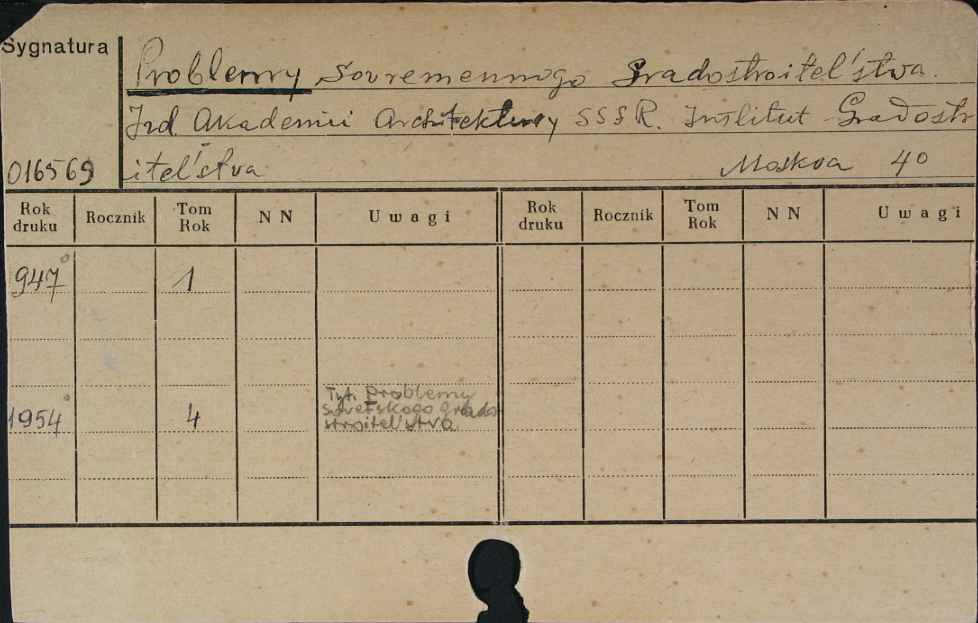 Sygnatura
Problemy Sovremennogo Gradostroitel'stva.
Izd. Akademii Architektury SSSR. Institut Gradostr
016569 itel'stva Moskva 4°
Rok druku Rocznik Tom Rok NN Uwagi Rok druku Rocznik Tom Rok NN Uwagi
947° 1
Tyt. Problemy
1954° 4 sovetskogo grado
stroitel'stva